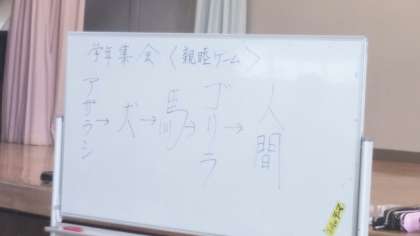 学年集会〈親睦ゲーム〉
アザラシ→犬→馬→ゴリラ→人間